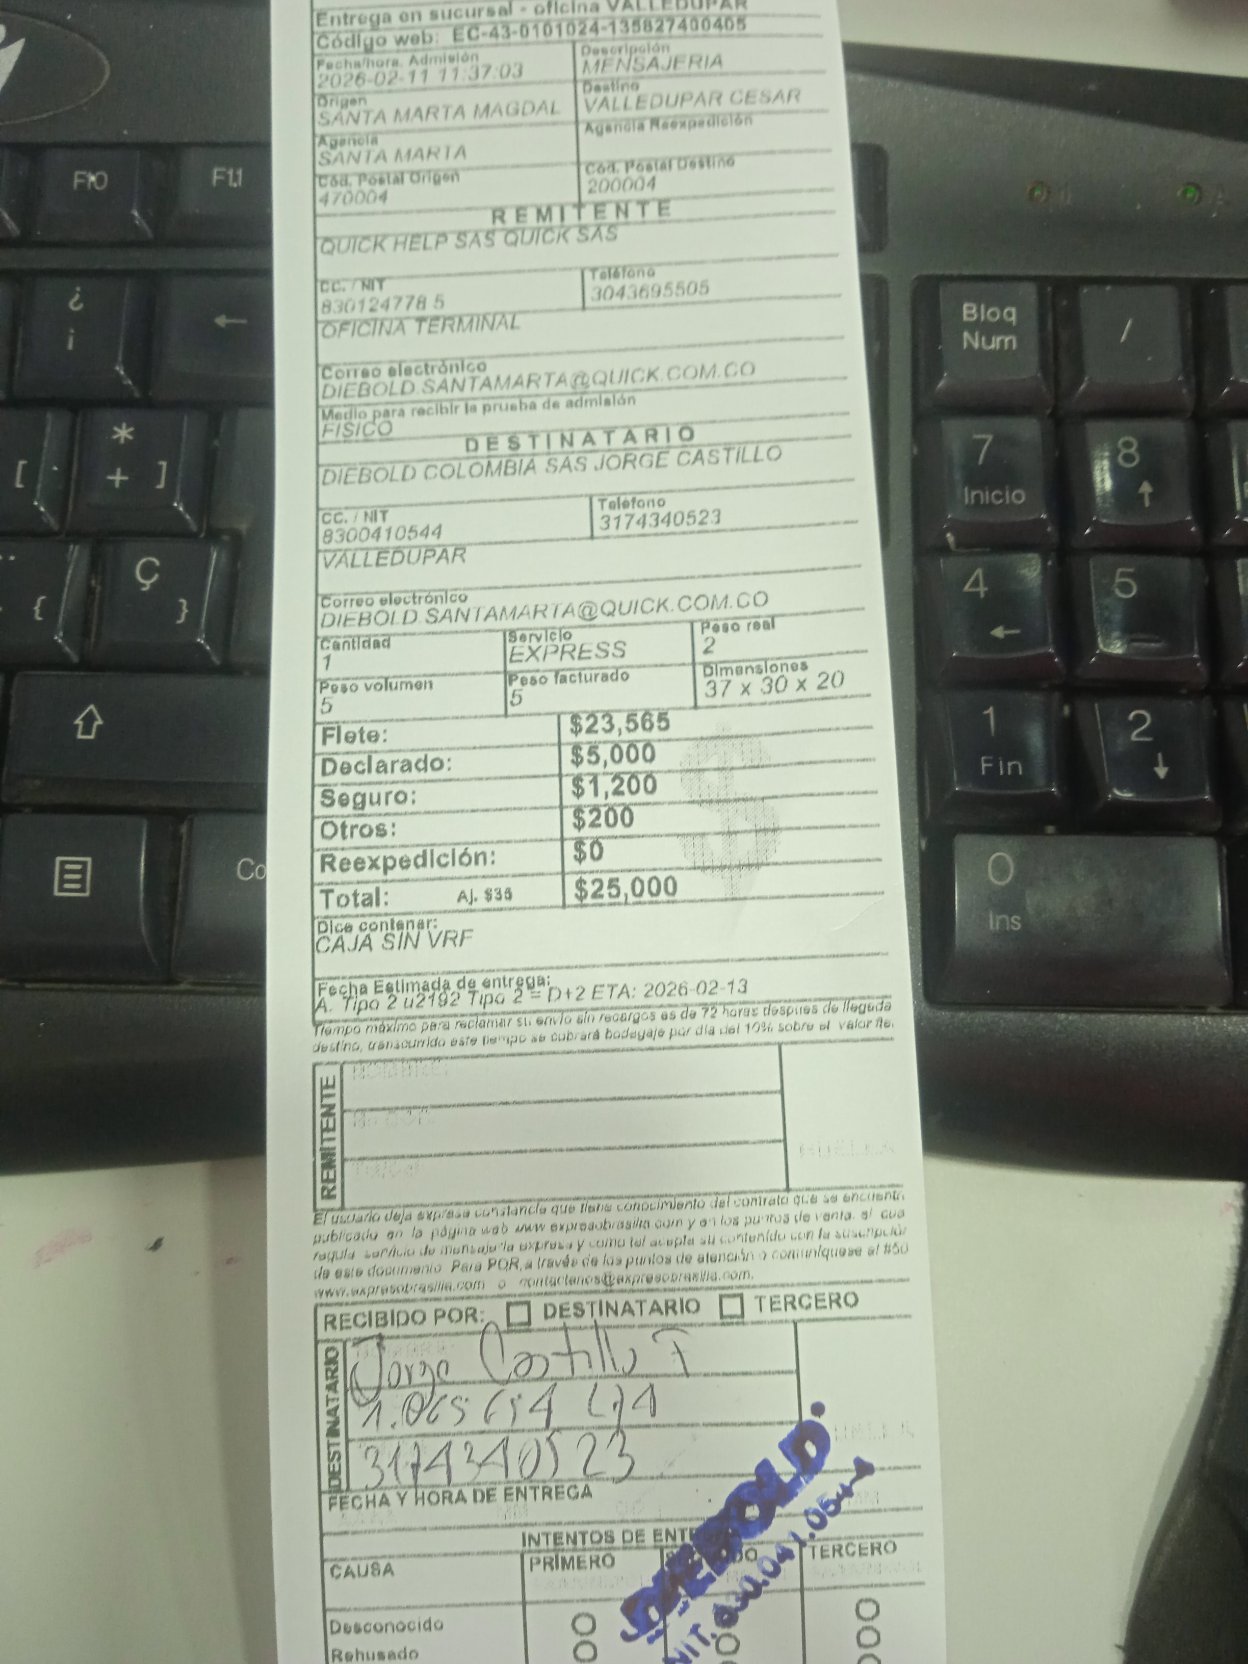 Entrega en sucursal - oficina VALLEDUPAR
Código web: EC-43-0101024-135827400405
Fecha/hora. Admisión
2026-02-11 11:37:03
Descripción
MENSAJERIA
Origen
SANTA MARTA MAGDAL
Destino
VALLEDUPAR CESAR
Agencia
SANTA MARTA
Agencia Reexpedición
Cód. Postal Origen
470004
Cód. Postal Destino
200004
REMITENTE
QUICK HELP SAS QUICK SAS
CC. / NIT
830124778 5
Teléfono
3043695505
OFICINA TERMINAL
Correo electrónico
DIEBOLD.SANTAMARTA@QUICK.COM.CO
Medio para recibir la prueba de admisión
FISICO
DESTINATARIO
DIEBOLD COLOMBIA SAS JORGE CASTILLO
CC. / NIT
8300410544
Teléfono
3174340523
VALLEDUPAR
Correo electrónico
DIEBOLD.SANTAMARTA@QUICK.COM.CO
Cantidad
1
Servicio
EXPRESS
Peso real
2
Peso volumen
5
Peso facturado
5
Dimensiones
37 x 30 x 20
Flete: $23,565
Declarado: $5,000
Seguro: $1,200
Otros: $200
Reexpedición: $0
Total: Aj. $35 $25,000
Dice contener:
CAJA SIN VRF
Fecha Estimada de entrega:
A. Tipo 2 u2192 Tipo 2 = D+2 ETA: 2026-02-13
Tiempo máximo para reclamar su envío sin recargos es de 72 horas despues de llegada
destino, transcurrido este tiempo se cobrará bodegaje por día del 10% sobre el valor fle.
REMITENTE
El usuario deja expresa constancia que tiene conocimiento del contrato que se encuentr.
publicado en la página web www expresobrasilia com y en los puntos de venta. el cua
regula servicio de mensajería expresa y como tal acepta su contenido con la suscripció
de este documento Para PQR, a través de los puntos de atención o comuníquese al #50
www.expresobrasilia.com o contactenos@expresobrasilia.com.
RECIBIDO POR: DESTINATARIO TERCERO
DESTINATARIO
Jorge Castillo F
1.065
3174340523
FECHA Y HORA DE ENTREGA
DIEBOLD.
NIT.
INTENTOS DE
CAUSA
PRIMERO
TERCERO
Desconocido
Rehusado
F10
F11
¿
¡
←
[
*
+
]
{
Ç
}
⇧
Co
Bloq
Num
/
7
Inicio
8
↑
4
←
5
1
Fin
2
↓
0
Ins